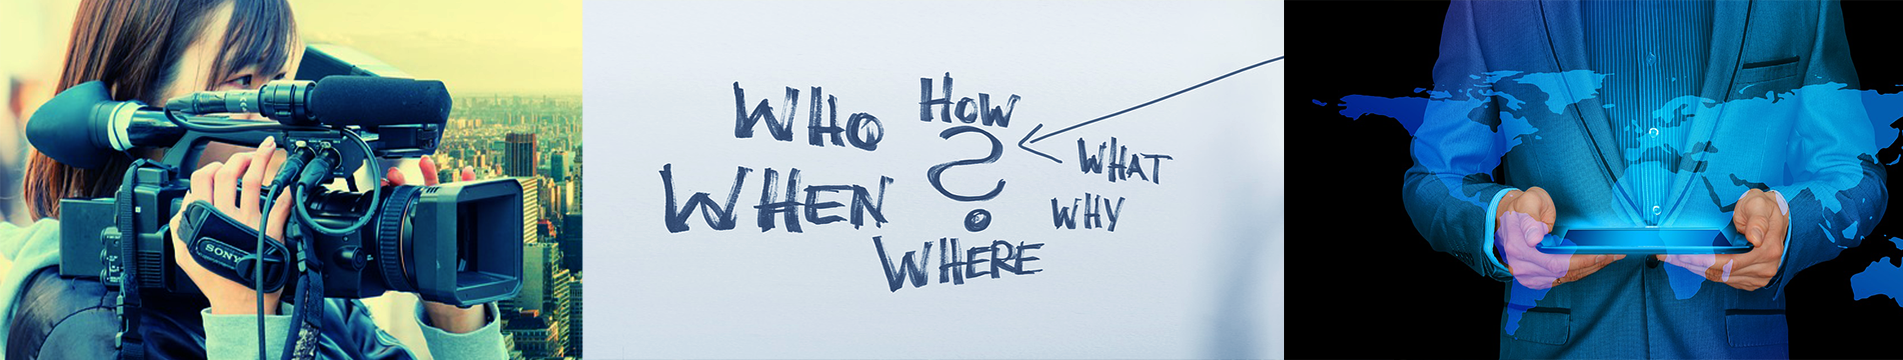 SONY
WHO
HOW
?
WHAT
WHEN
WHY
WHERE